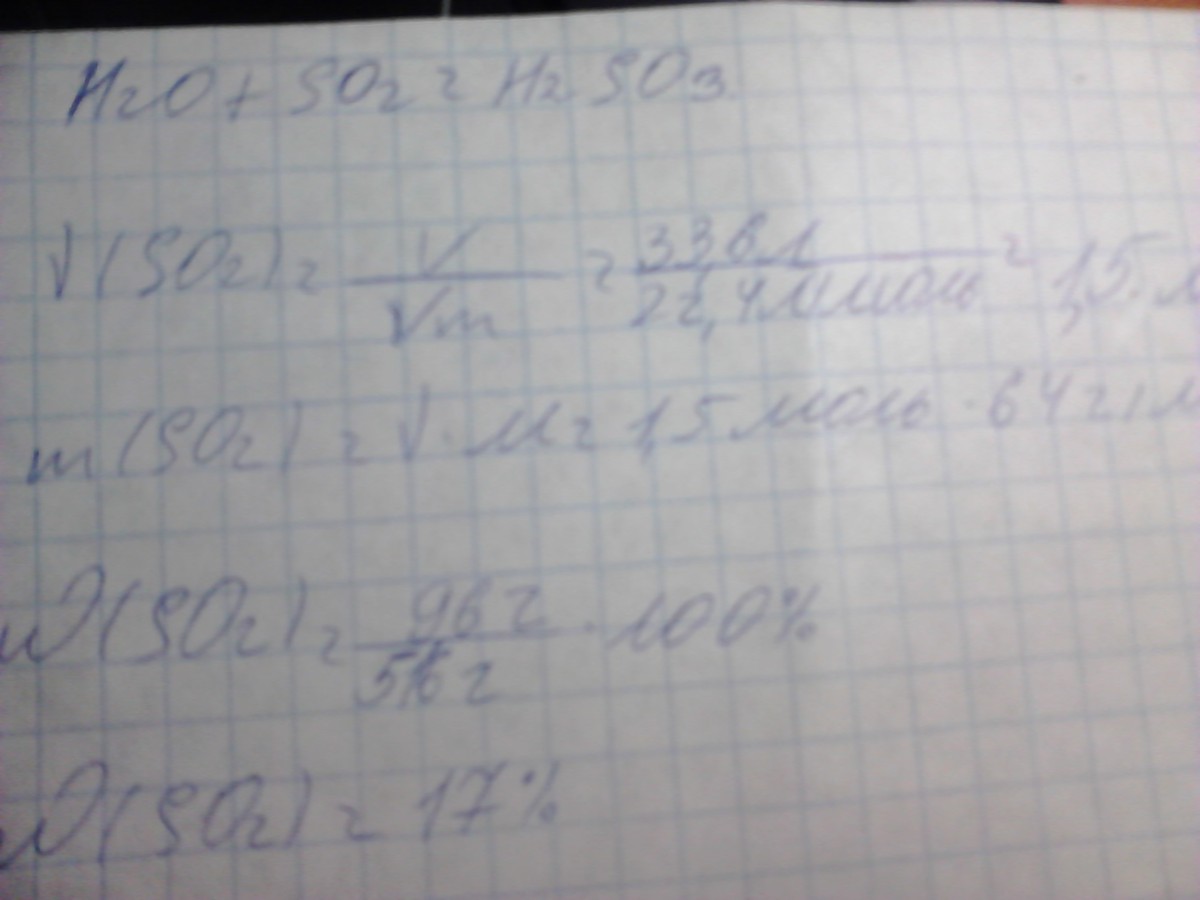 H₂O + SO₂ = H₂SO₃
ν(SO₂) = V/Vm = 33,6л/22,4л/моль = 1,5 м
m(SO₂) = ν · M = 1,5 моль · 64 г/м
ω(SO₂) = 96 г / г · 100%
ω(SO₂) = 17%